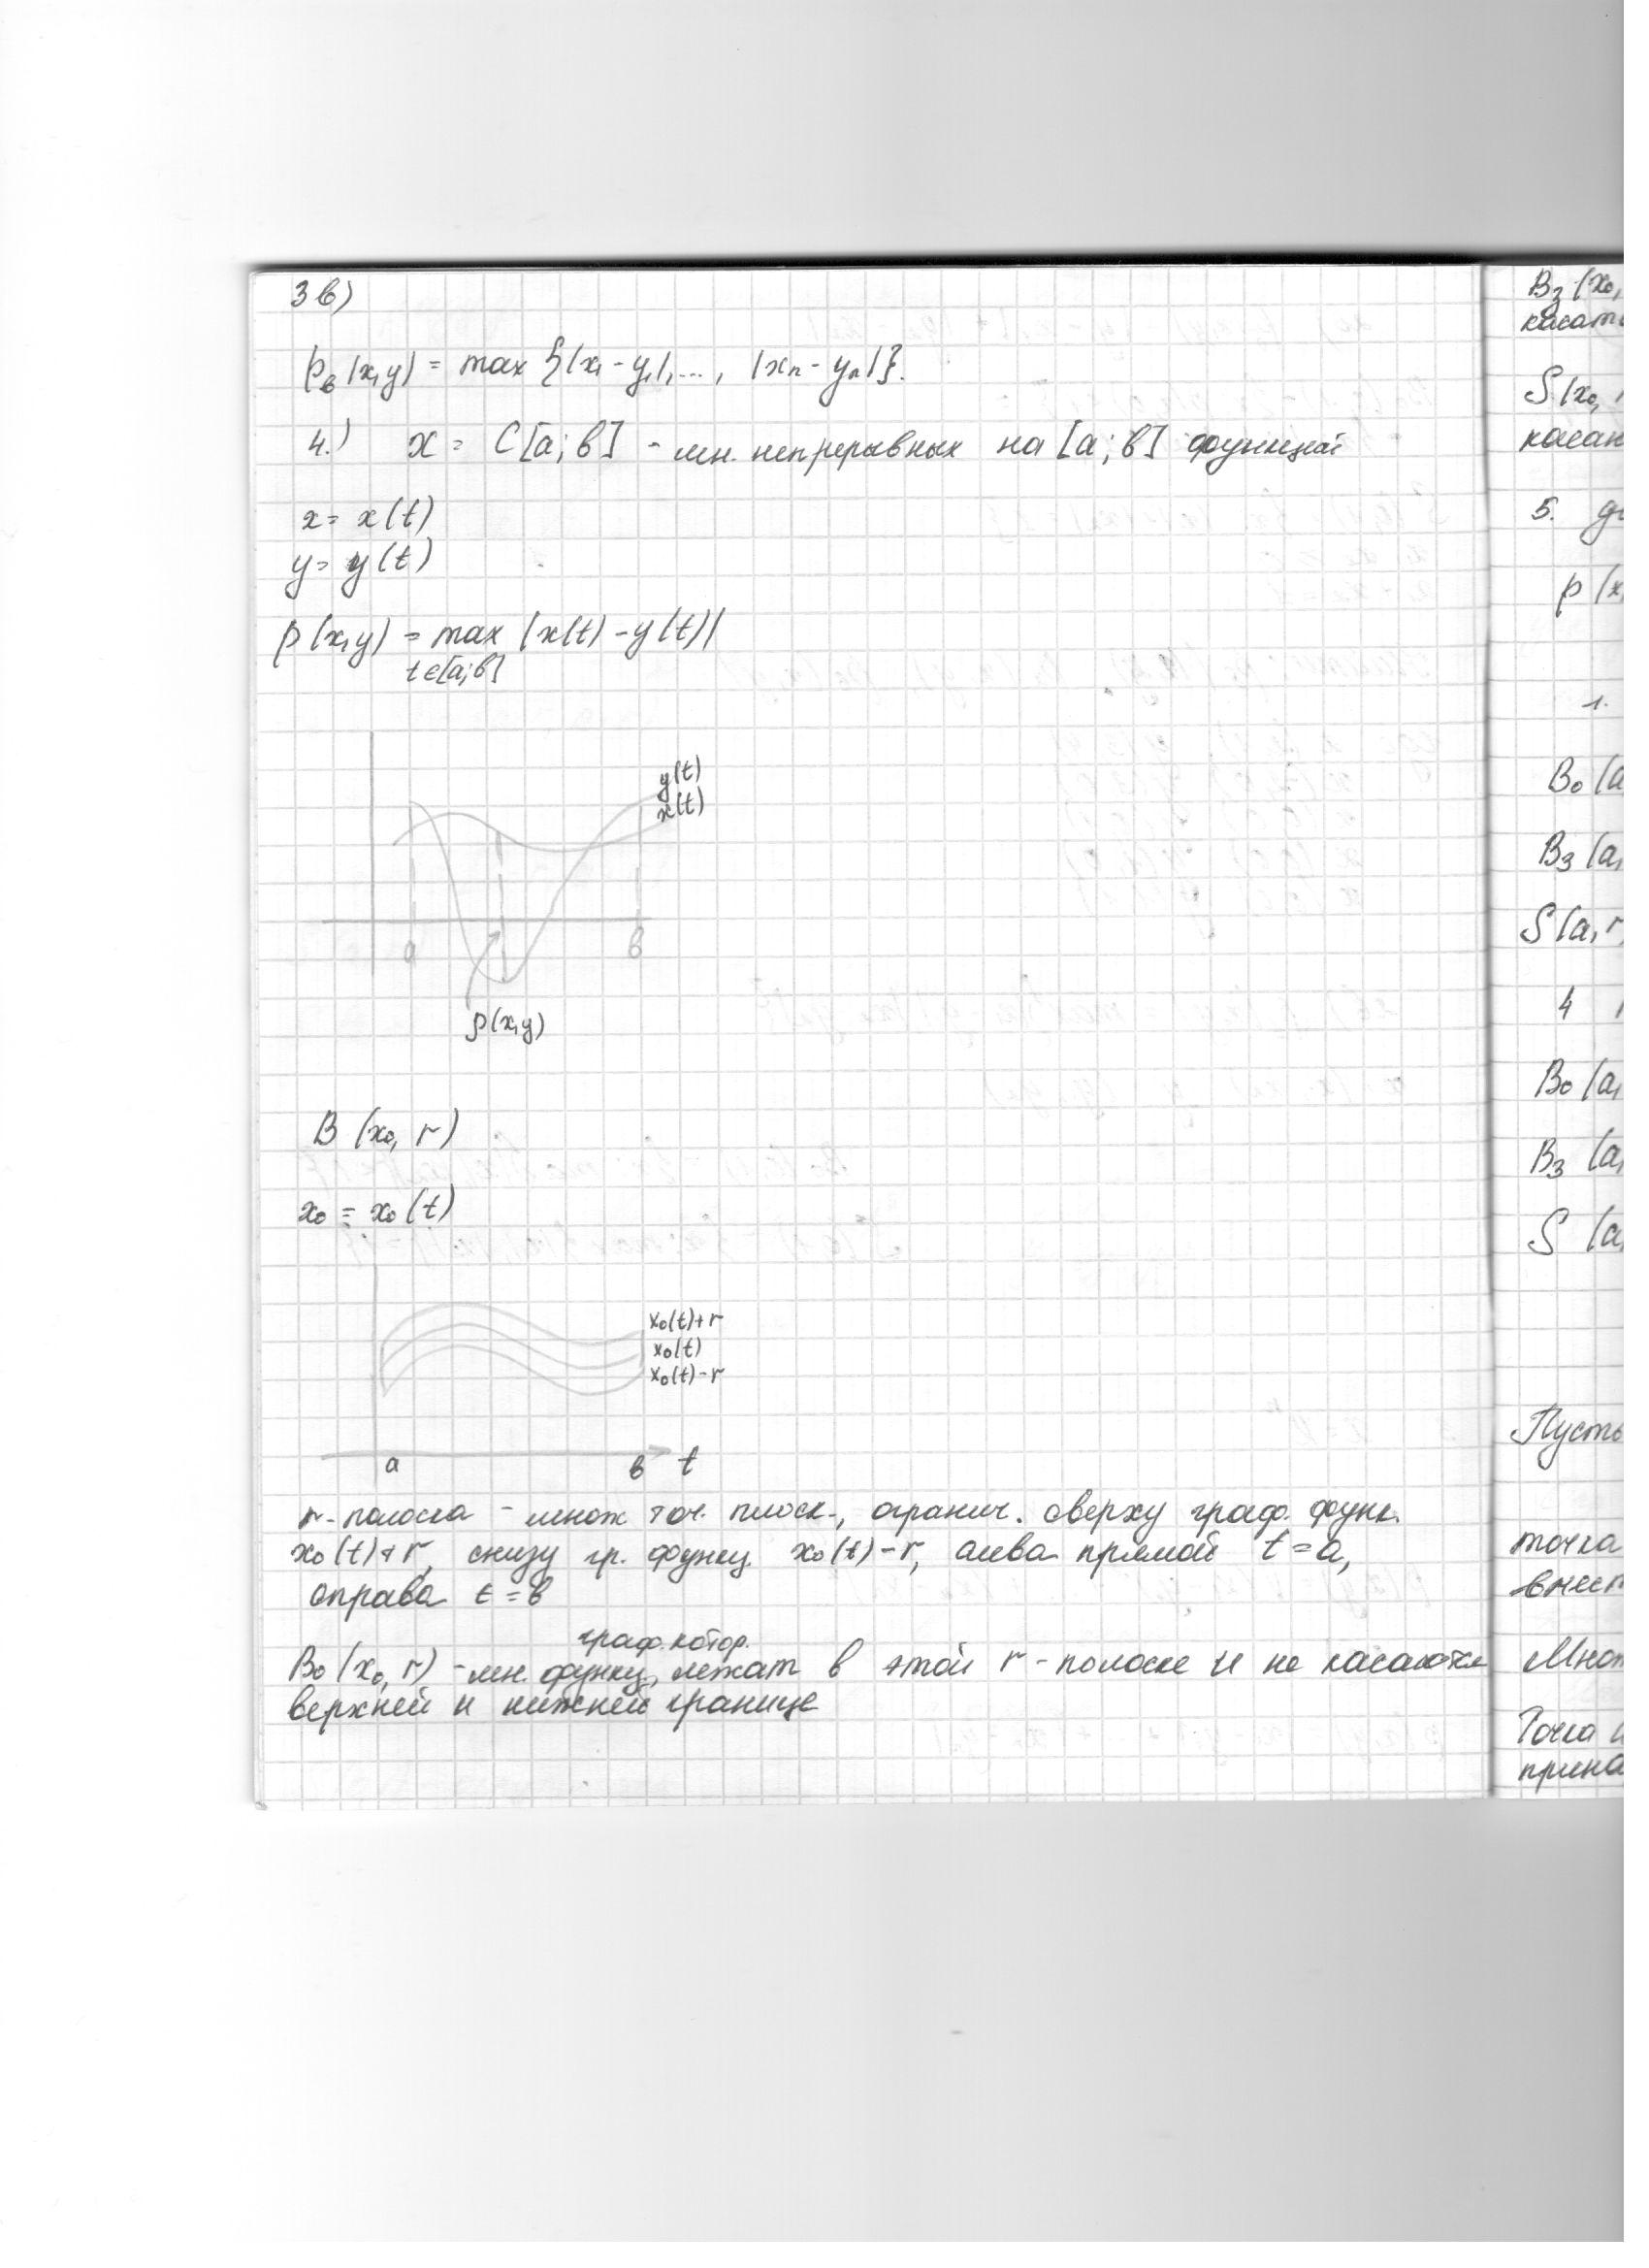 3в)
ρв(x,y) = max {|x₁ - y₁|, ..., |xₙ - yₙ|}.
4.) X = C[a;в] - мн. непрерывных на [a;в] функций
x = x(t)
y = y(t)
ρ(x,y) = max |x(t) - y(t)|
t∈[a;в]
y(t)
x(t)
a в
ρ(x,y)
B (x₀, r)
x₀ = x₀(t)
x₀(t)+r
x₀(t)
x₀(t)-r
a в t
r-полоска - множ точ. плоск., огранич. сверху граф. функ.
x₀(t)+r, снизу гр. функц x₀(t)-r, слева прямой t=a,
справа t=в
граф. котор.
B₀(x₀, r) - мн. функц, лежат в этой r-полоске и не касаются
верхней и нижней границе
B₃(x₀,
S(x₀,
5.
ρ(x,
1.
B₀(a
B₃(a,
S(a, r,
4
B₀(a,
B₃(a,
S(a,
Пусть
точка
Точка